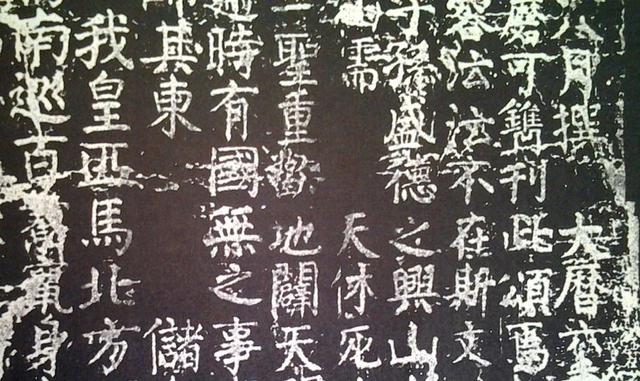 八月撰 大曆六
磨可鐫刊此頌焉
容沄沄不在斯文
子孫盛德之興山
濡 天休死
二聖重歡地闢天
時有國無之事
其東 儲
我皇匹馬北方
南巡百寮竄身